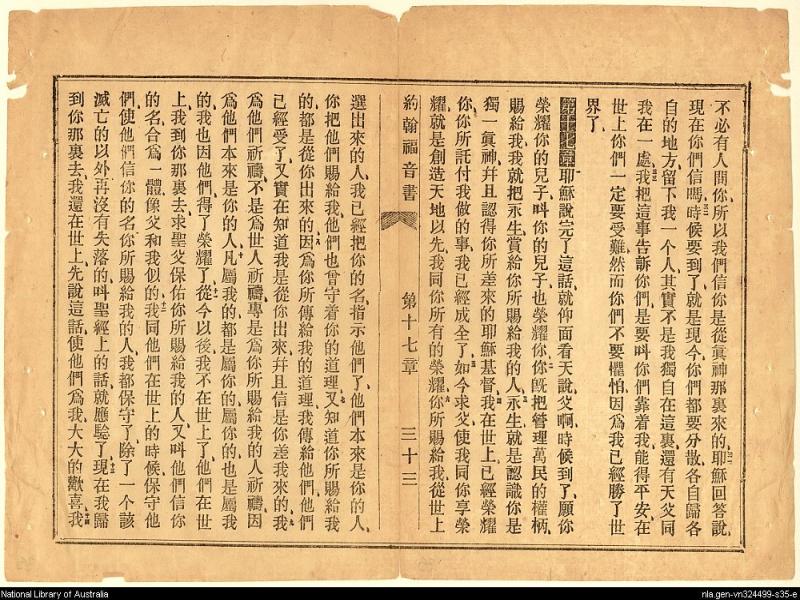 不必有人問你所以我們信你是從眞神那裏來的耶穌回答說
現在你們信嗎時候要到了就是現今你們都要分散各自歸各
自的地方留下我一個人其實不是我獨自在這裏還有天父同
我在一處我把這事告訴你們是要叫你們靠着我能得平安在
世上你們一定要受難然而你們不要懼怕因爲我已經勝了世
界了
第十七章耶穌說完了這話就仰面看天說父啊時候到了願你
榮耀你的兒子叫你的兒子也榮耀你你旣把管理萬民的權柄
賜給我我就把永生賞給你所賜給我的人永生就是認識你是
獨一眞神幷且認得你所差來的耶穌基督我在世上已經榮耀
你你所託付我做的事我已經成全了如今求父使我同你享榮
耀就是創造天地以先我同你所有的榮耀你所賜給我從世上
約翰福音書 第十七章 三十三
選出來的人我已經把你的名指示他們了他們本來是你的人
你把他們賜給我他們也曾守着你的道理又知道你所賜給我
的都是從你出來的因爲你所傳給我的道理我傳給他們他們
已經受了又實在知道我是從你出來幷且信是你差我來的我
爲他們祈禱不是爲世人祈禱專是爲你所賜給我的人祈禱因
爲他們本來是你的人凡屬我的都是屬你的屬你的也是屬我
的我也因他們得了榮耀了從今以後我不在世上了他們在世
上我到你那裏去求聖父保佑你所賜給我的人又叫他們信你
的名合爲一體像父和我似的我同他們在世上的時候保守他
們使他們信你的名你所賜給我的人我都保守了除了一個該
滅亡的以外再沒有失落的叫聖經上的話就應驗了現在我歸
到你那裏去我還在世上先說這話使他們爲我大大的歡喜我
National Library of Australia
nla.gen-vn324499-s35-e